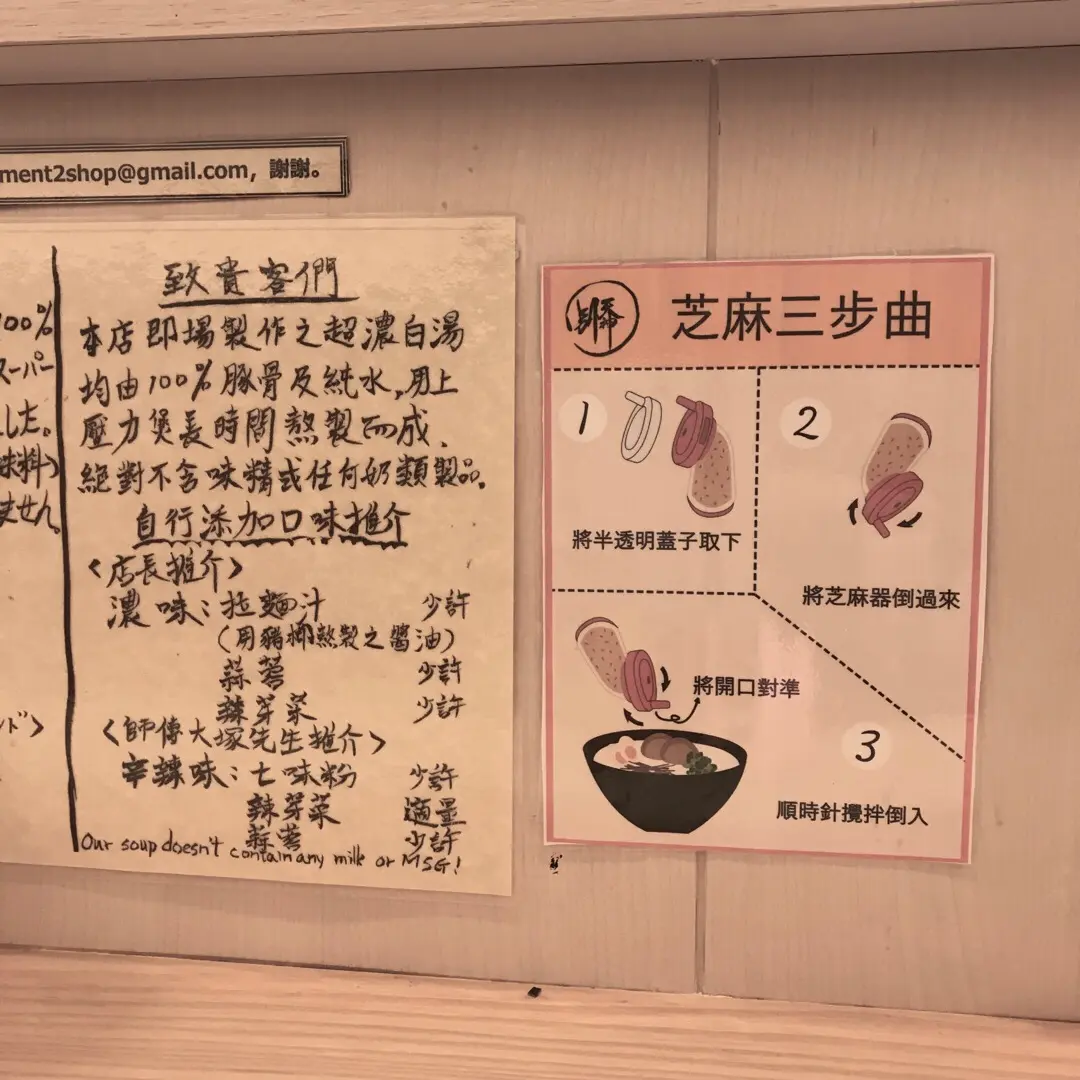 ment2shop@gmail.com，謝謝。
100%
スーパー
した。
味料)
ません。
ンド〉
致貴客們
本店即場製作之超濃白湯
均由100%豚骨及純水,用上
壓力煲長時間熬製而成、
絕對不含味精或任何奶類製品。
自行添加口味推介
<店長推介>
濃味:拉麵汁 少許
(用豬𦟌熬製之醬油)
蒜蓉 少許
辣芽菜 少許
<師傅大塚先生推介>
辛辣味:七味粉 少許
辣芽菜 適量
蒜蓉 少許
Our soup doesn't contain any milk or MSG!
芝麻三步曲
1
將半透明蓋子取下
2
將芝麻器倒過來
將開口對準
3
順時針攪拌倒入